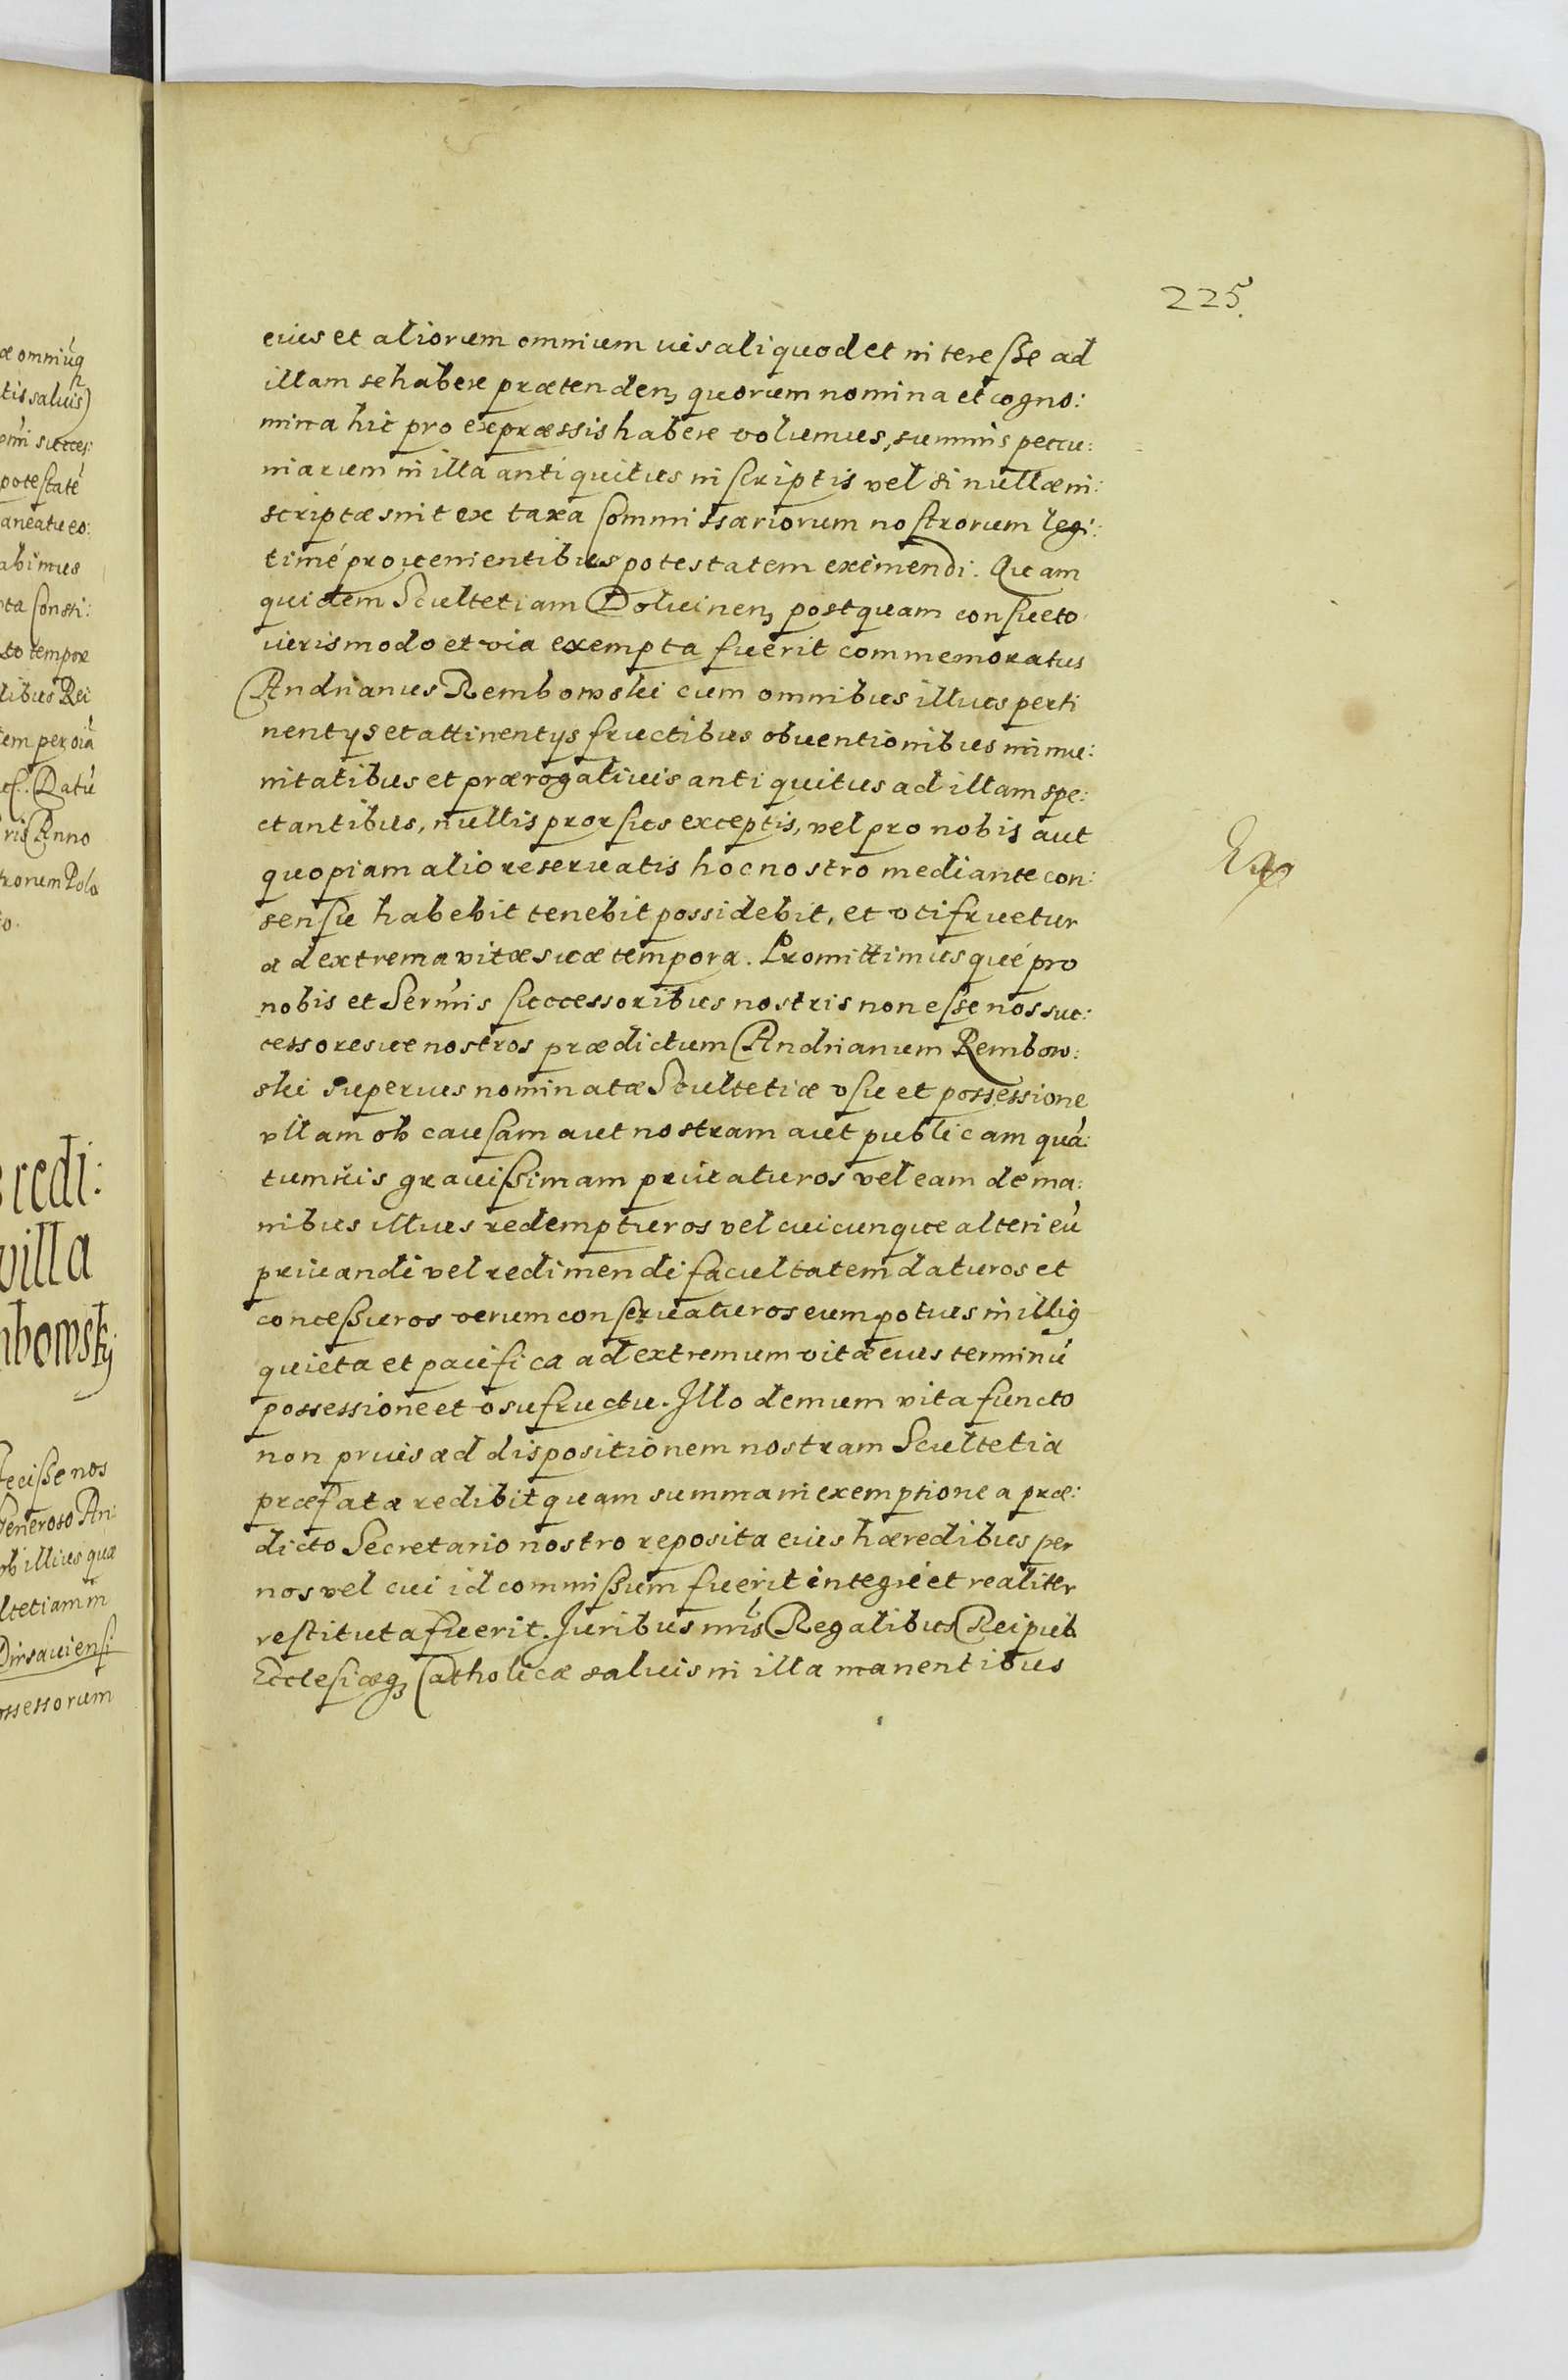 225.
eius et aliorum omnium ius aliquod et interesse ad
illam se habere prætenden, quorum nomina et cogno:
mina hic pro expræssis habere volumus, summis pecu:
niarum in illa antiquitus inscriptis vel si nullæ in:
scriptæ sint ex taxa Commissariorum nostrorum legi:
timé prouenientibus potestatem eximendi. Quam
quidem Scultetiam Doluinen, postquam consueto
iuris modo et via exempta fuerit commemoratus
Andrianus Rembowski cum omnibus illius perti
nentys et attinentys fructibus obuentionibus immu:
nitatibus et prærogatiuis antiquitus ad illam spe:
ctantibus, nullis prorsus exceptis, vel pro nobis aut
quopiam alio reseruatis hoc nostro mediante con:
sensu habebit tenebit possidebit, et vtifruetur
ad extrema vitæ suæ tempora. Promittimusqué pro
nobis et Sermis successoribus nostris non esse nos suc:
cessoresue nostros prædictum Andrianum Rembow:
ski superius nominatæ Scultetiæ vsu et possessione
vllam ob causam aut nostram aut publicam quá:
tumuis grauissimam priuaturos vel eam de ma:
nibus illius redempturos vel cuicunque alteri eú
priuandi vel redimendi facultatem daturos et
concessuros verum conseruaturos eum potius in illiꝯ
quieta et pacifica ad extremum vitæ eius terminú
possessione et vsufructu. Illo demum vita functo
non prius ad dispositionem nostram Scultetia
præfata redibit quam summa in exemptione a præ:
dicto Secretario nostro reposita eius hæredibus per
nos vel cui id commissum fuerit integré et realiter
restituta fuerit. Iuribus nris Regalibus Reipub.
Ecclesiæq₃ Catholicæ saluis in illa manentibus